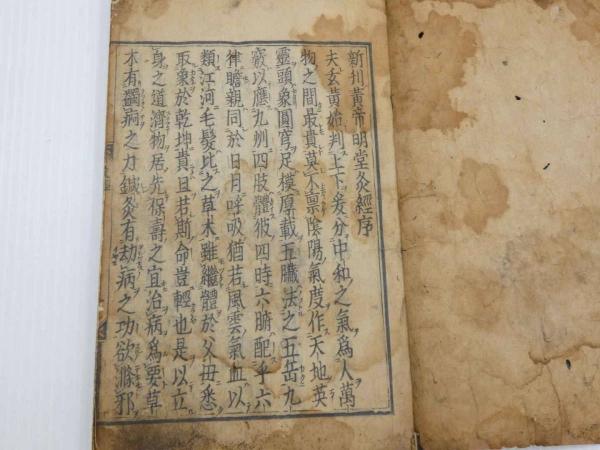 新刊黄帝明堂灸經序
夫玄黄始判上下爰分中和之氣爲人萬
物之間最貴莫不禀陰陽氣度作天地英
靈頭象圓穹足模厚載五臓法之五岳九
竅以應九州四肢體彼四時六腑配乎六
律瞻視同於日月呼吸猶若風雲氣血以
類江河毛髮比之草木雖繼體於父母悉
取象於乾坤貴且若斯命豈輕也是以立
身之道濟物居先保壽之宜治病爲要草
木有蠲痾之力鍼灸有劫病之功欲滌邪